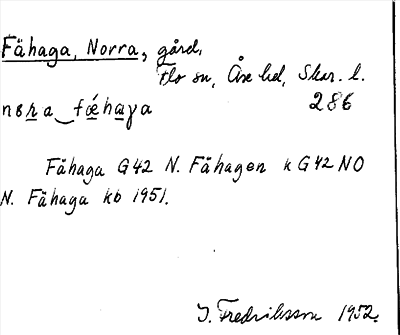 Fähaga, Norra, gård,
Flo sn, Åse hd, Skar. l.
nɷra_fǽhaγa 286
Fähaga G42 N. Fähagen k G42 NO
N. Fähaga kb 1951.
I. Fredriksson 1952.